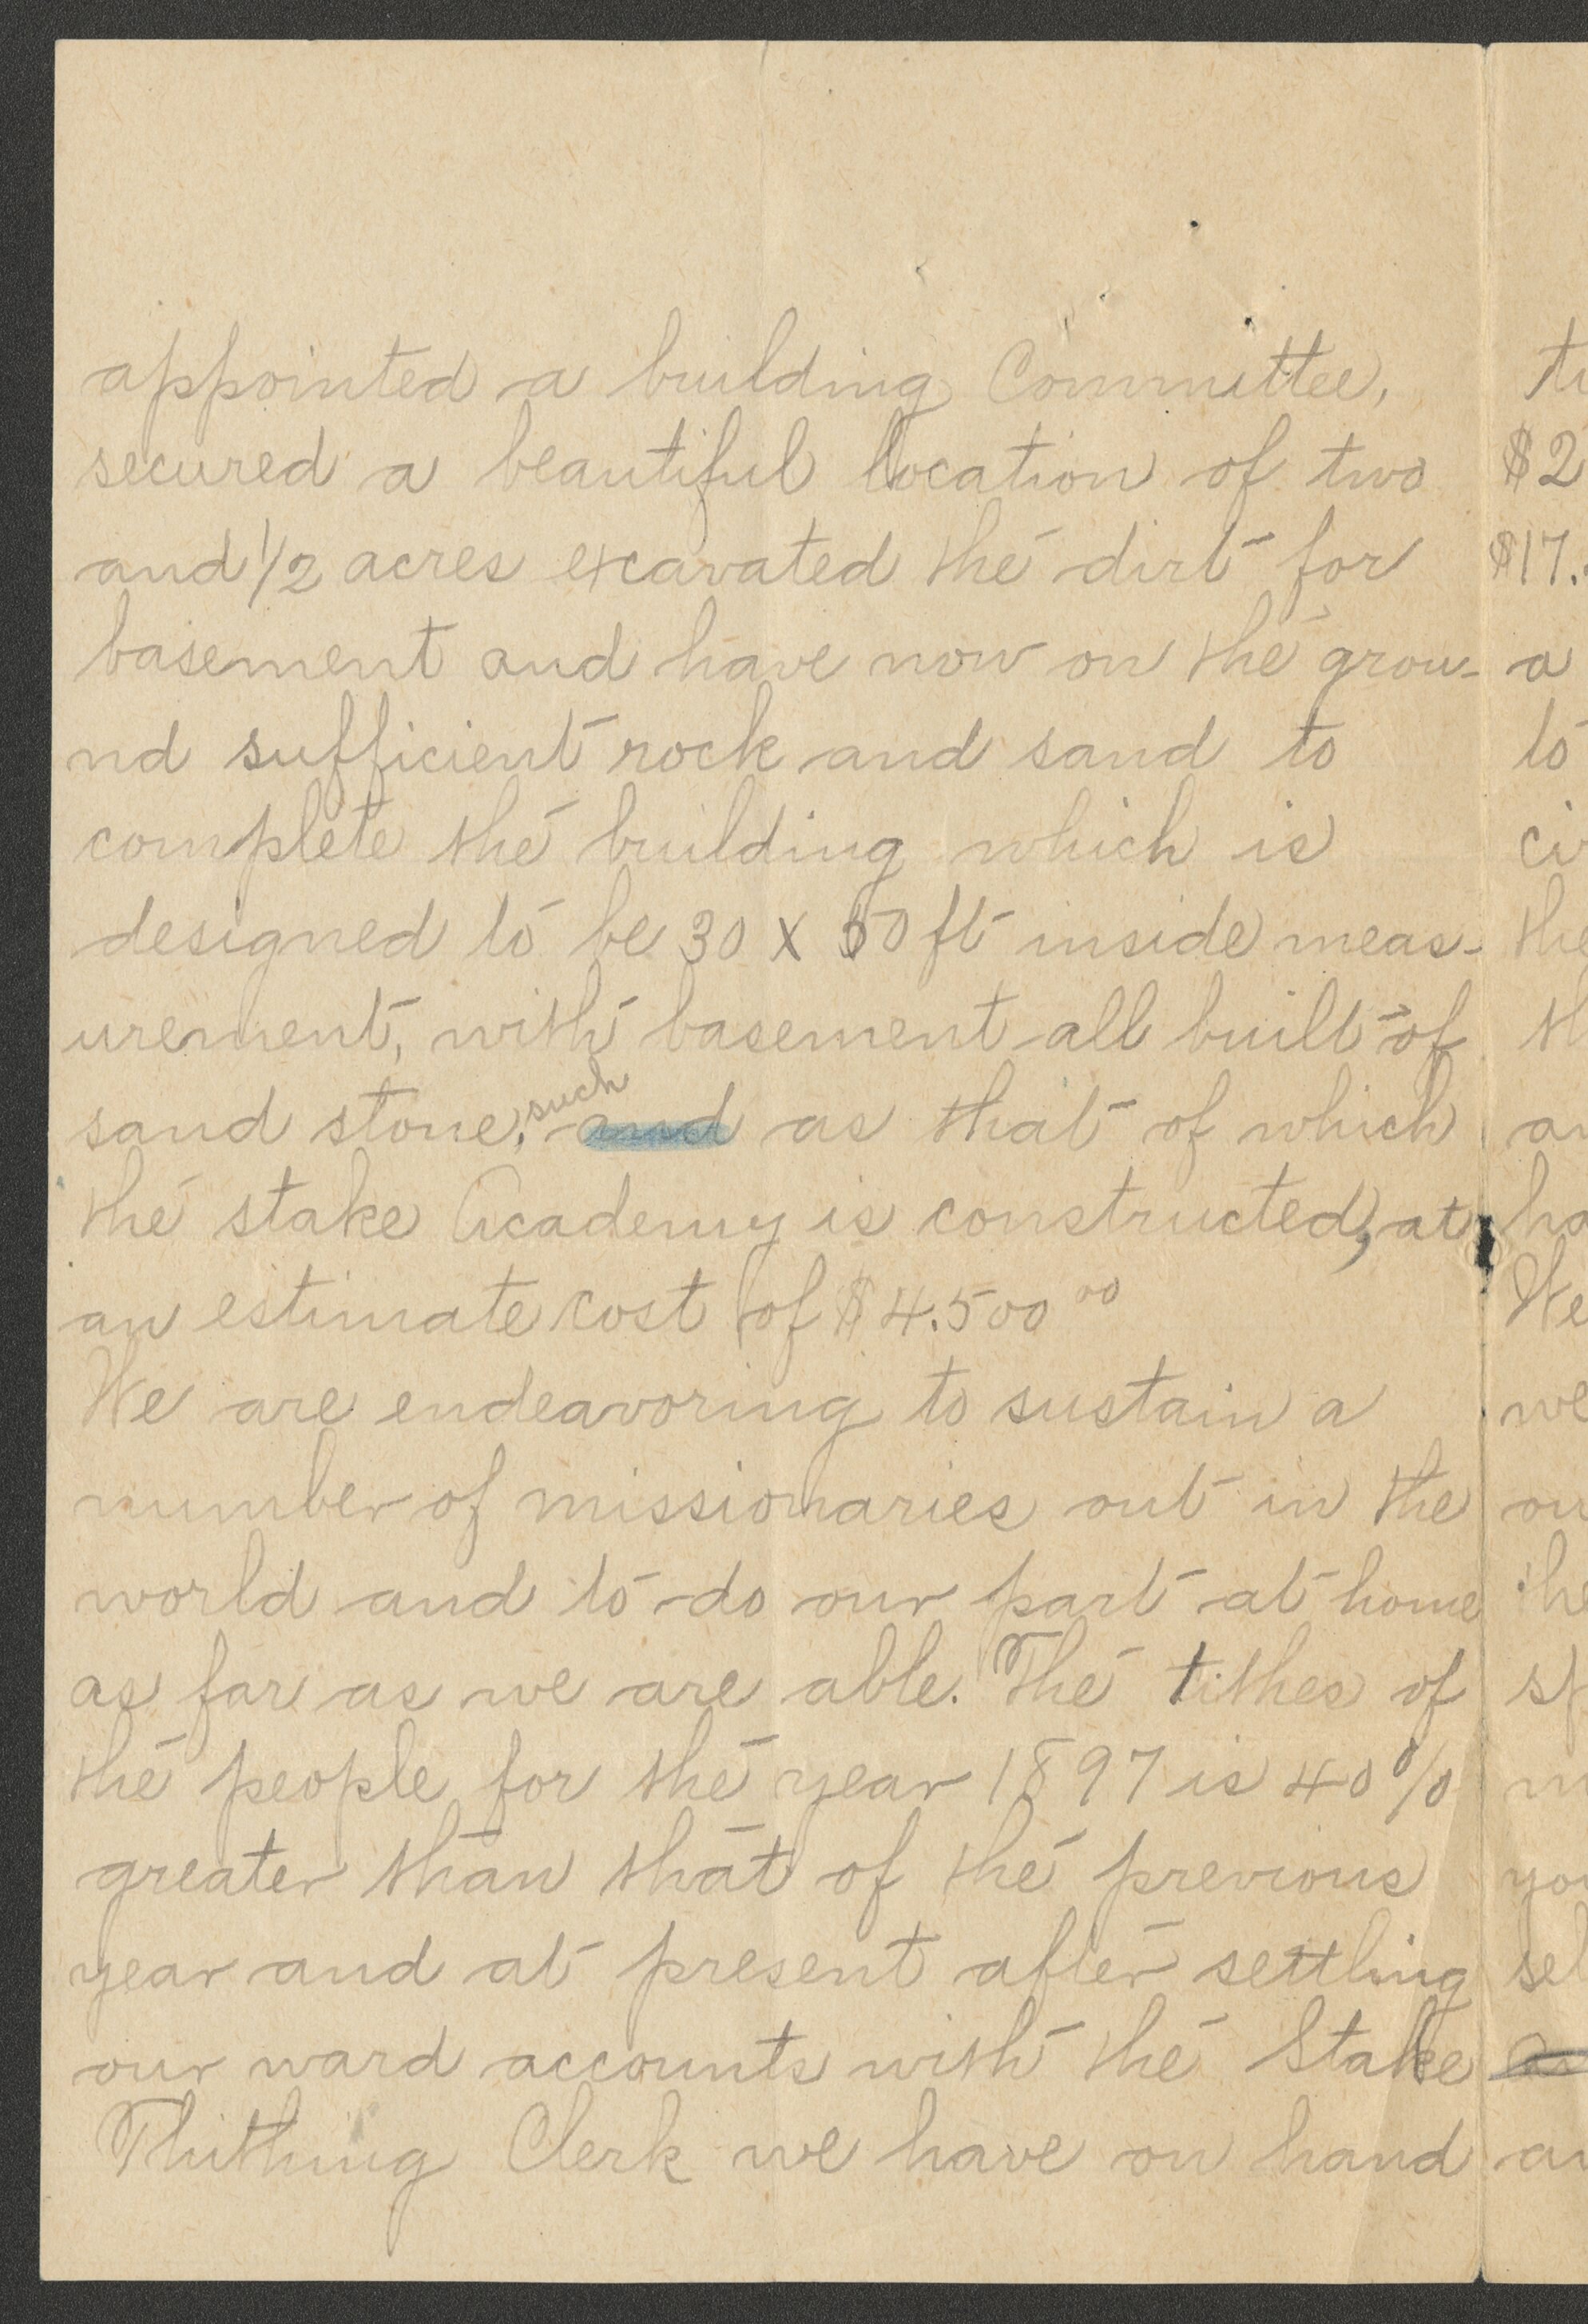 appointed a building Committee,
secured a beautiful location of two
and 1/2 acres excavated the dirt for
basement and have now on the grou-
nd sufficient rock and sand to
complete the building which is
designed to be 30 x 50 ft inside meas-
urement, with basement all built of
sand stone, such and as that of which
the stake Academy is constructed, at
an estimate cost of $4.500 00
We are endeavoring to sustain a
number of missionaries out in the
world and to do our part at home
as far as we are able. The tithes of
the people for the year 1897 is 40%
greater than that of the previous
year and at present after settling
our ward accounts with the Stake
Thithing Clerk we have on hand
$2
$17.
a
to
the
We
we